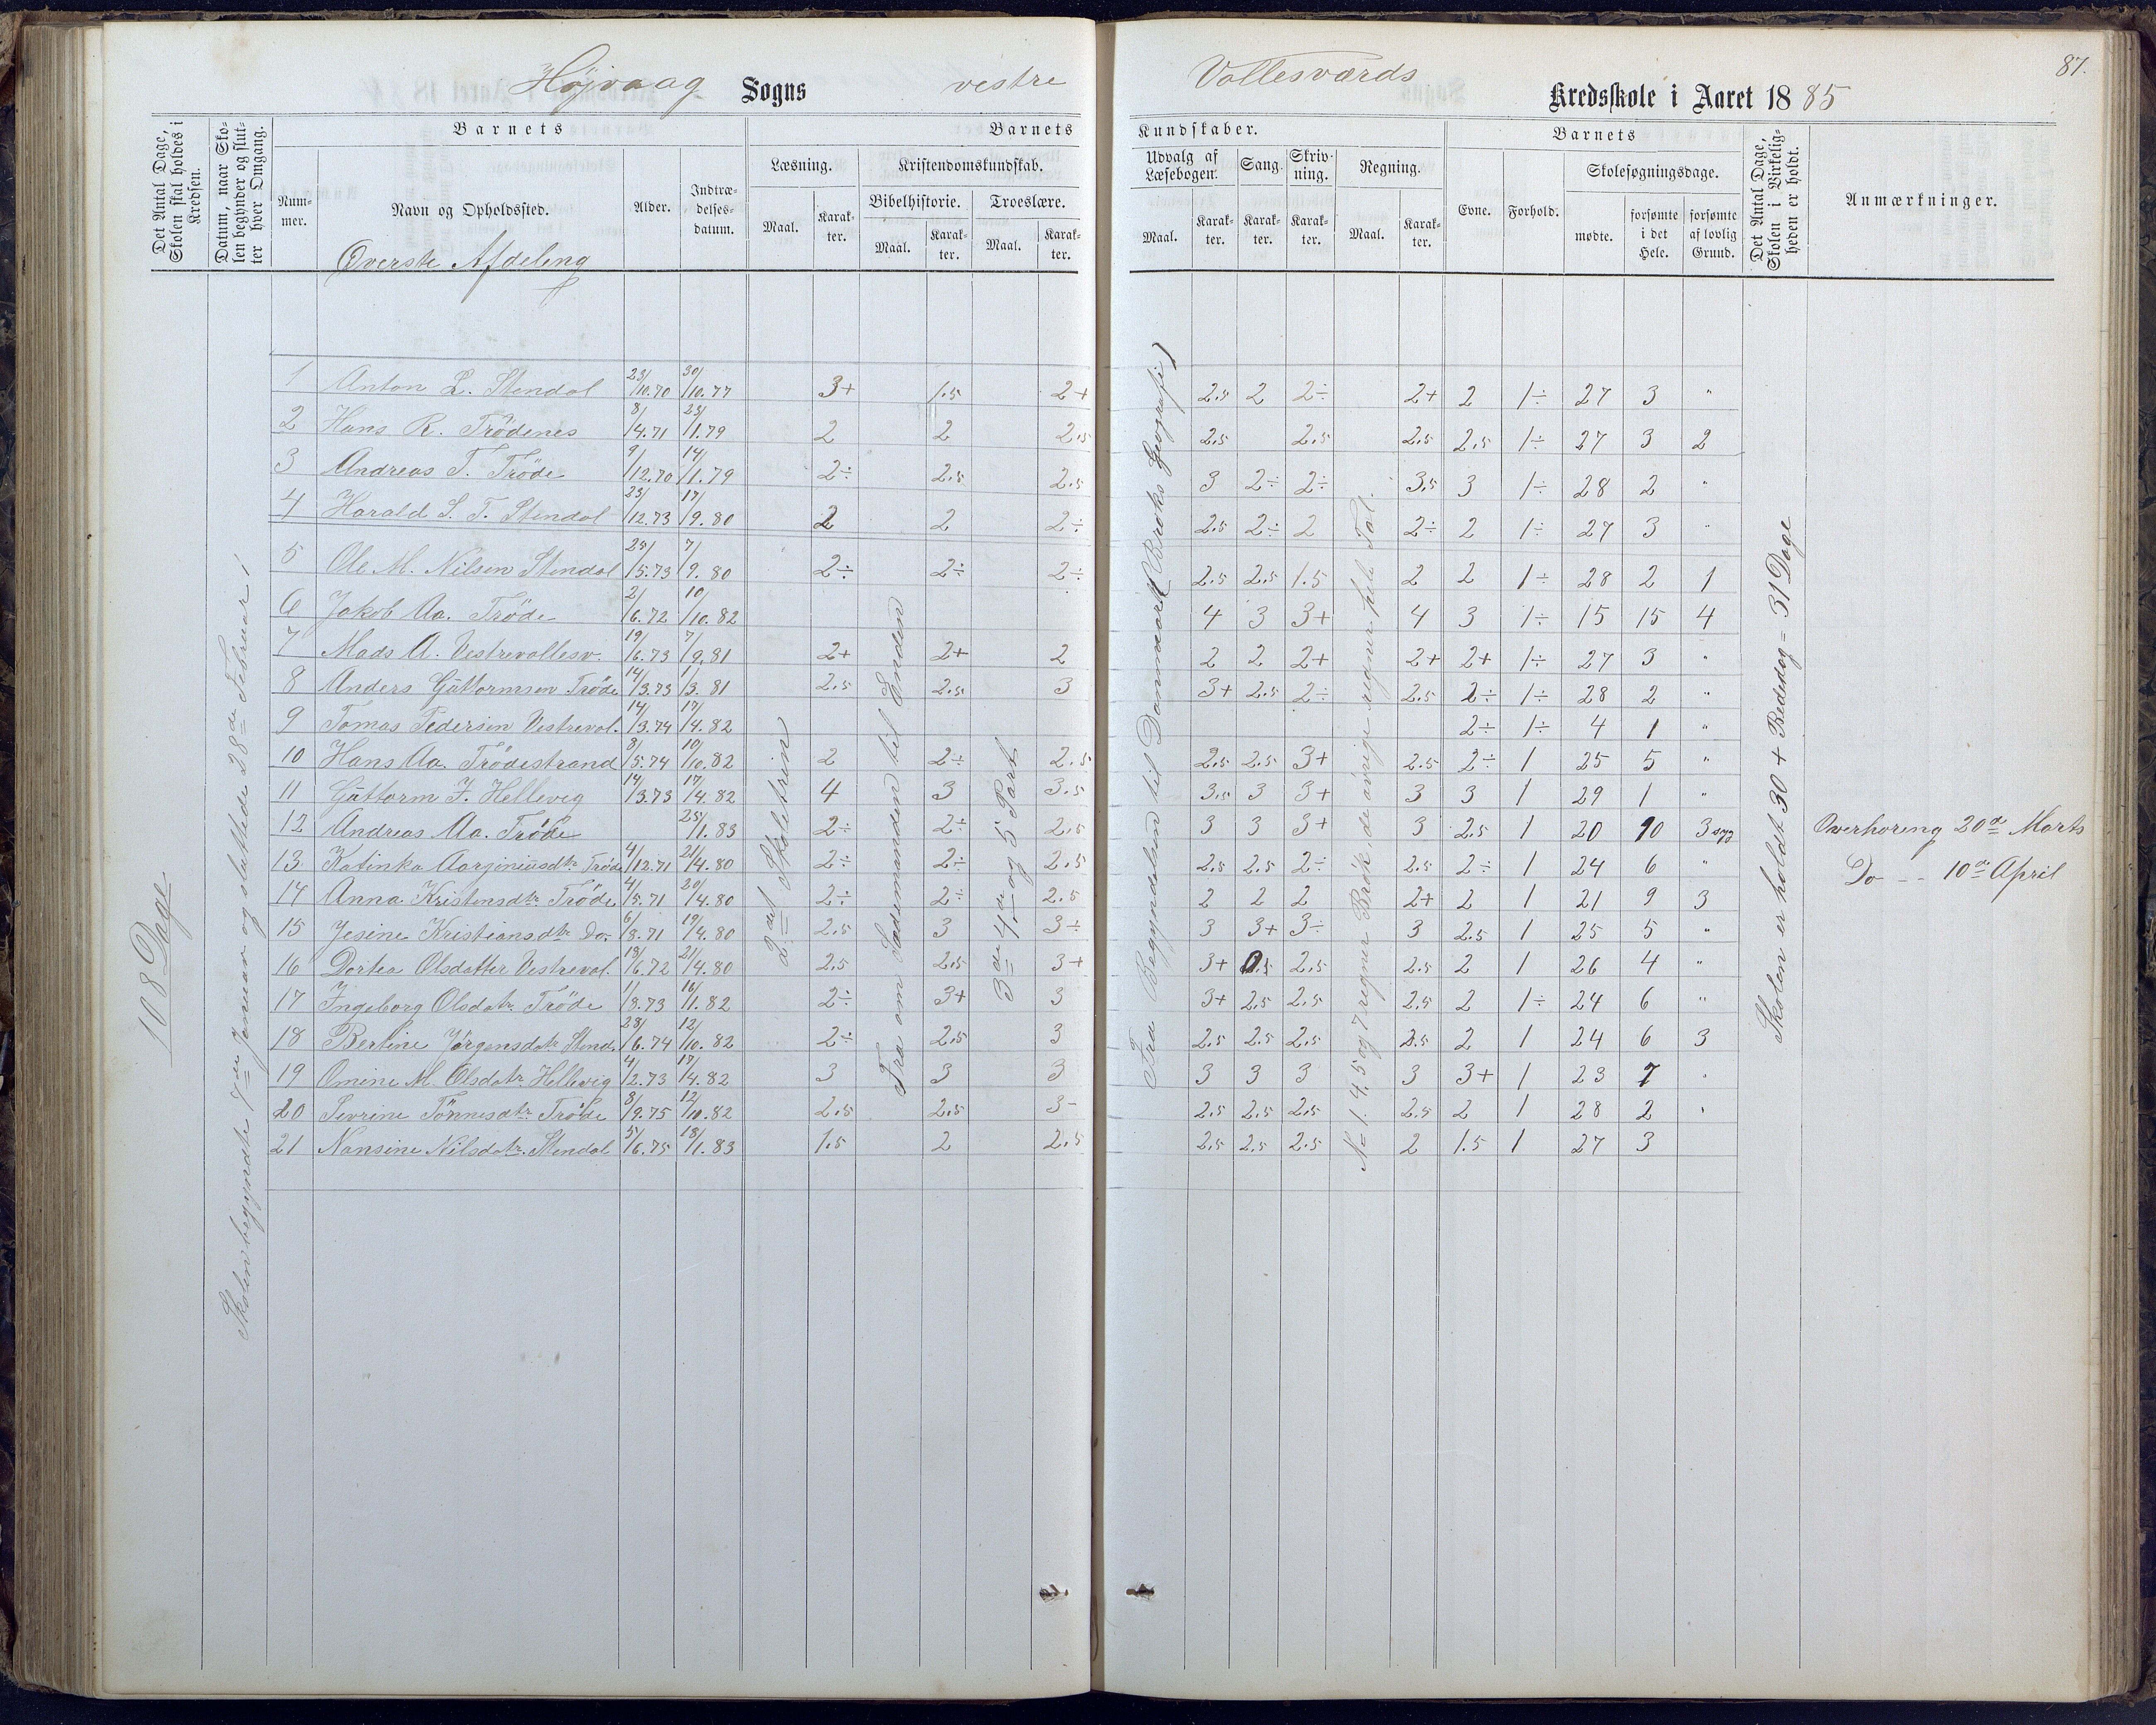 87.
Højvaag Sogns vestre Vallesværds Kredsskole i Aaret 1885
Det Antal Dage, Skolen skal holdes i Kredsen.
Datum, naar Skolen begynder og slutter hver Omgang.
Barnets
Nummer.
Navn og Opholdssted.
Alder.
Indtrædelsesdatum.
Barnets Kundskaber.
Læsning.
Maal.
Karakter.
Kristendomskundskab.
Bibelhistorie.
Maal.
Karakter.
Troeslære.
Maal.
Karakter.
Udvalg af Læsebogen.
Maal.
Karakter.
Sang.
Karakter.
Skrivning.
Karakter.
Regning.
Maal.
Karakter.
Barnets
Evne.
Forhold.
Skolesøgningsdage.
mødte.
forsømte i det Hele.
forsømte af lovlig Grund.
Det Antal Dage, Skolen i Virkeligheden er holdt.
Anmærkninger.
Øverste Afdeling
108 Dage
Skolen begyndte 7de Januar og sluttede 28de Februar 1
2det Skoletrin
Fra om Sædemanden til Enden
3de 4de og 5 Part
Fra Begyndelsen til Danmark (Broks Geografi)
No 1. 4. 5 og 7 regner Brøk, de øvrige regner hele Tal.
Skolen er holdt 30 + Bededag = 31 Dage
1 Anton L. Stendal 23/10.70 30/10.77 3+ 1.5 2+ 2.5 2 2÷ 2+ 2 1÷ 27 3 "
2 Hans R. Trödenes 8/4.71 23/1.79 2 2 2.5 2.5 2.5 2.5 2.5 1÷ 27 3 2
3 Andreas T. Tröde 9/12.70 14/1.79 2÷ 2.5 2.5 3 2÷ 2÷ 3.5 3 1÷ 28 2 "
4 Harald S. T. Stendal 23/12.73 17/9.80 2 2 2÷ 2.5 2÷ 2 2÷ 2 1÷ 27 3 "
5 Ole M. Nilsen Stendal 25/5.73 7/9.80 2÷ 2÷ 2÷ 2.5 2.5 1.5 2 2 1÷ 28 2 1
6 Jakob Aa. Tröde 2/6.72 10/10.82 4 3 3+ 4 3 1÷ 15 15 4
7 Mads A. Vestrevallesv. 19/6.73 7/9.81 2+ 2+ 2 2 2 2+ 2+ 2+ 1÷ 27 3 "
8 Anders Guttormsen Tröde 14/3.73 1/3.81 2.5 2.5 3 3+ 2.5 2÷ 2.5 2÷ 1÷ 28 2 "
9 Tomas Pedersen Vestreval. 14/3.74 17/4.82 2÷ 1÷ 4 1 "
10 Hans Aa. Trödestrand 8/5.74 10/10.82 2 2÷ 2.5 2.5 2.5 3+ 2.5 2÷ 1 25 5 "
11 Guttorm F. Hellevig 14/3.73 17/4.82 4 3 3.5 3.5 3 3+ 3 3 1 29 1 "
12 Andreas Aa. Tröde 25/1.83 2÷ 2÷ 2.5 3 3 3+ 3 2.5 1 20 10 3 syg Overhøring 20de Marts
13 Katinka Aarginiusdtr. Tröde 4/12.71 21/4.80 2÷ 2÷ 2.5 2.5 2.5 2÷ 2.5 2÷ 1 24 6 " Do - - 10de April
14 Anna Kristensdtr. Tröde 4/5.71 20/4.80 2÷ 2÷ 2.5 2 2 2 2+ 2 1 21 9 3
15 Jesine Kristiansdtr Do. 6/8.71 19/4.80 2.5 3 3÷ 3 3+ 3÷ 3 2.5 1 25 5 "
16 Dortea Olsdatter Vestreval. 18/6.72 21/4.80 2.5 2.5 3+ 3+ 2.5 2.5 2 1 26 4 "
17 Ingeborg Olsdatr. Tröde 1/8.73 16/1.82 2÷ 3+ 3 3+ 2.5 2.5 2.5 2 1÷ 24 6 "
18 Bertine Jörgensdatr. Stend. 28/6.74 12/10.82 2÷ 2.5 3 2.5 2.5 2.5 2.5 2 1 24 6 3
19 Omine M. Olsdatr. Hellevig 4/2.73 17/4.82 3 3 3 3 3 3 3 3+ 1 23 7 "
20 Sevrine Tönnesdtr. Tröde 8/9.75 12/10.82 2.5 2.5 3- 2.5 2.5 2.5 2.5 2 1 28 2 "
21 Nansine Nilsdatr. Stendal 5/6.75 18/1.83 1.5 2 2.5 2.5 2.5 2.5 2 1.5 1 27 3